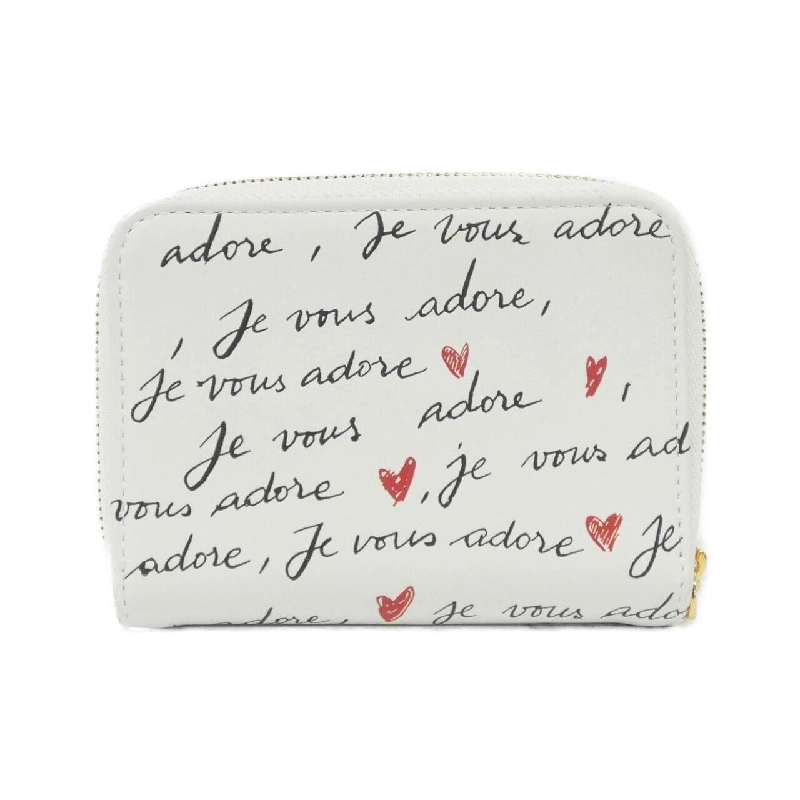 adore, Je vous adore
, Je vous adore,
Je vous adore
Je vous adore,
vous adore, je vous ad
adore, Je vous adore Je
adore, je vous ado